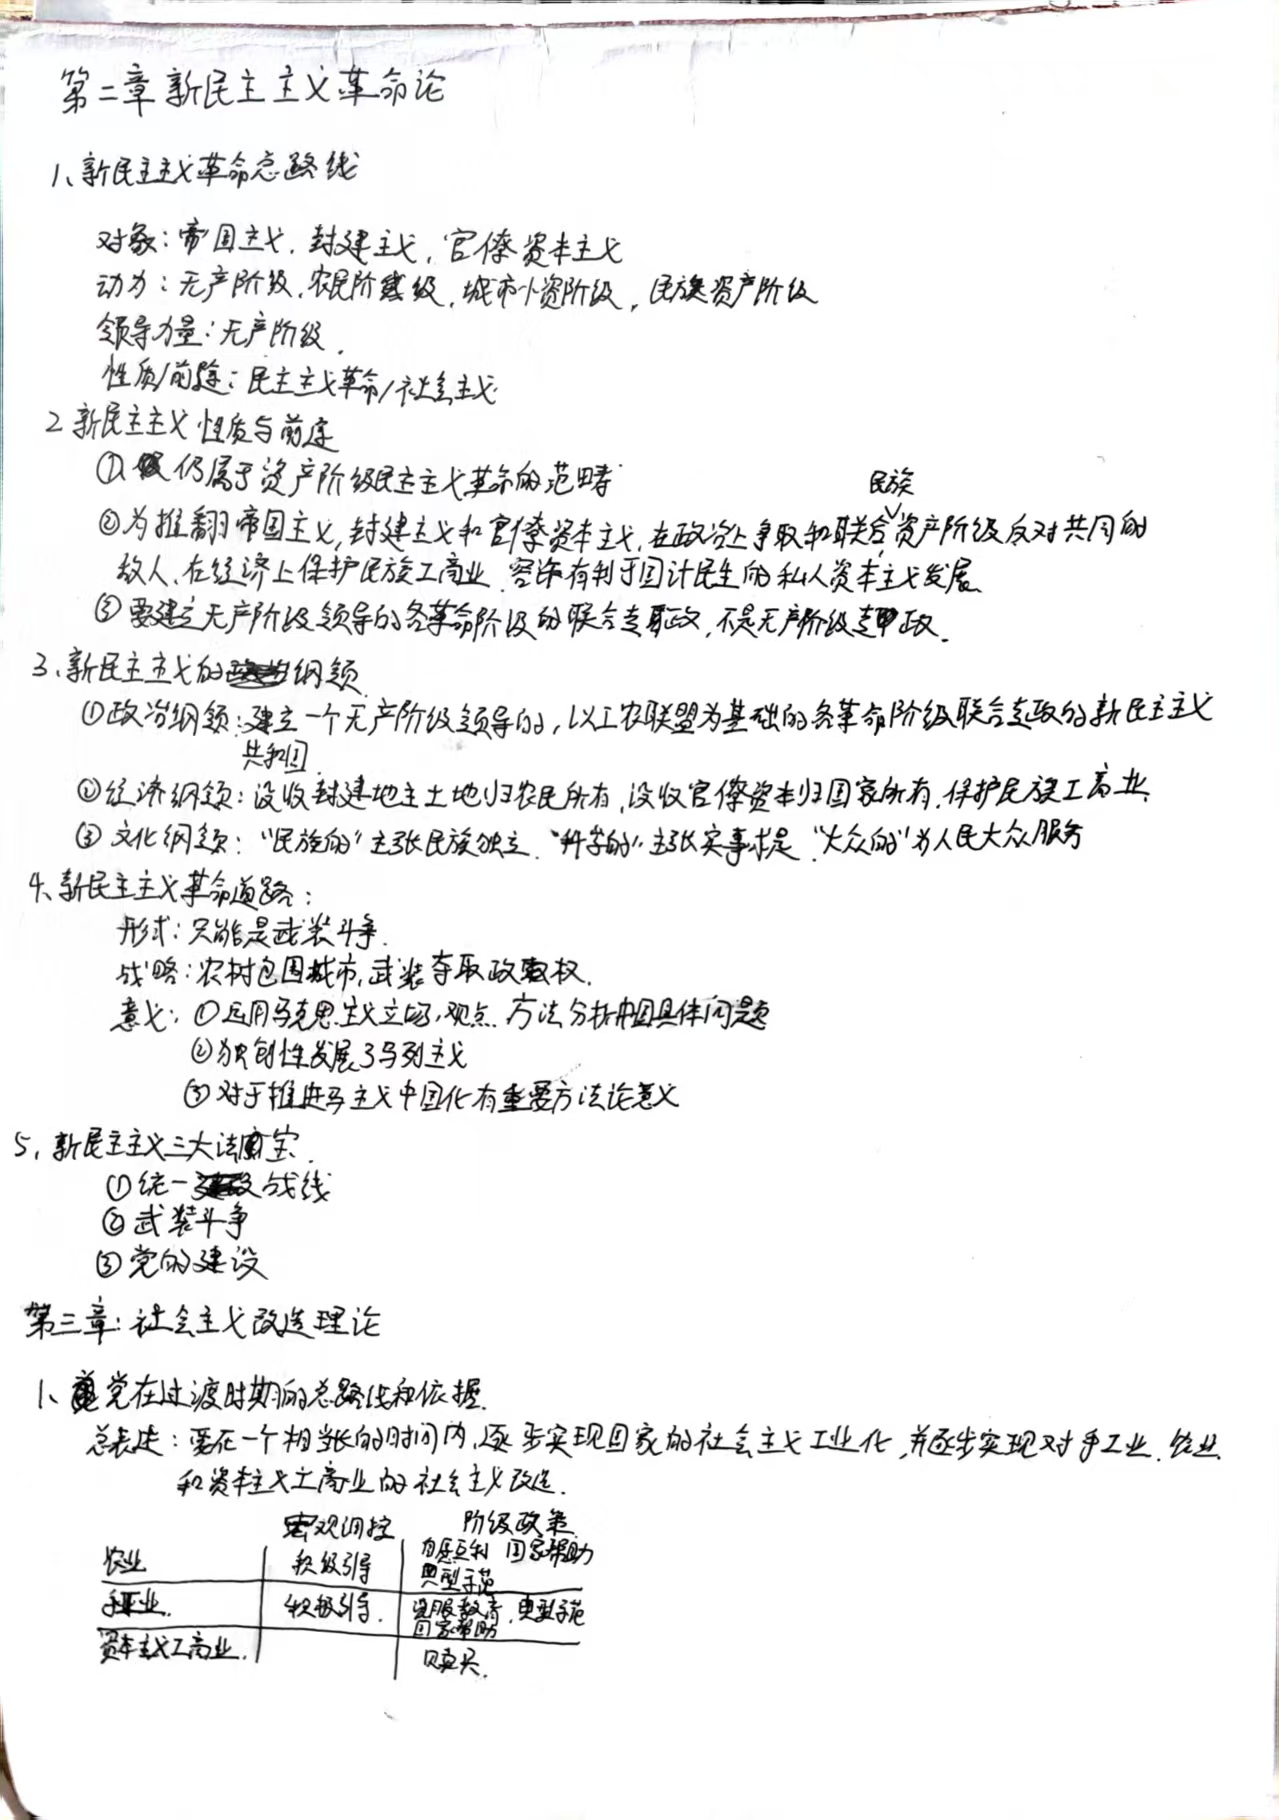 第二章 新民主主义革命论
1、新民主主义革命总路线
对象：帝国主义、封建主义、官僚资本主义
动力：无产阶级、农民阶级、城市小资阶级、民族资产阶级
领导力量：无产阶级.
性质/前途：民主主义革命/社会主义
2 新民主主义性质与前途
① 仍属于资产阶级民主主义革命的范畴
民族
②为推翻帝国主义,封建主义和官僚资本主义,在政治上争取和联合资产阶级反对共同的
敌人、在经济上保护民族工商业 容许有利于国计民生的私人资本主义发展
③ 要建立无产阶级领导的各革命阶级的联合专政,不是无产阶级专政.
3、新民主主义的纲领
①政治纲领：建立一个无产阶级领导的,以工农联盟为基础的各革命阶级联合专政的新民主主义
共和国
②经济纲领：没收封建地主土地归农民所有,没收官僚资本归国家所有,保护民族工商业.
③ 文化纲领：“民族的”主张民族独立 “科学的”主张实事求是 “大众的”为人民大众服务
4、新民主主义革命道路：
形式：只能是武装斗争.
战略：农村包围城市,武装夺取政权.
意义：①运用马克思主义立场,观点.方法分析中国具体问题
②独创性发展了马列主义
③对于推进马主义中国化有重要方法论意义
5、新民主主义三大法宝.
①统一战线
②武装斗争
③党的建设
第三章：社会主义改造理论
1、党在过渡时期的总路线和依据.
总表述：要在一个相当长的时间内,逐步实现国家的社会主义工业化,并逐步实现对手工业、农业
和资本主义工商业的社会主义改造.
宏观调控 阶级政策
农业 积极引导 自愿互利 国家帮助
典型示范
手工业. 积极引导. 说服教育,典型示范
国家帮助
资本主义工商业. 赎买.